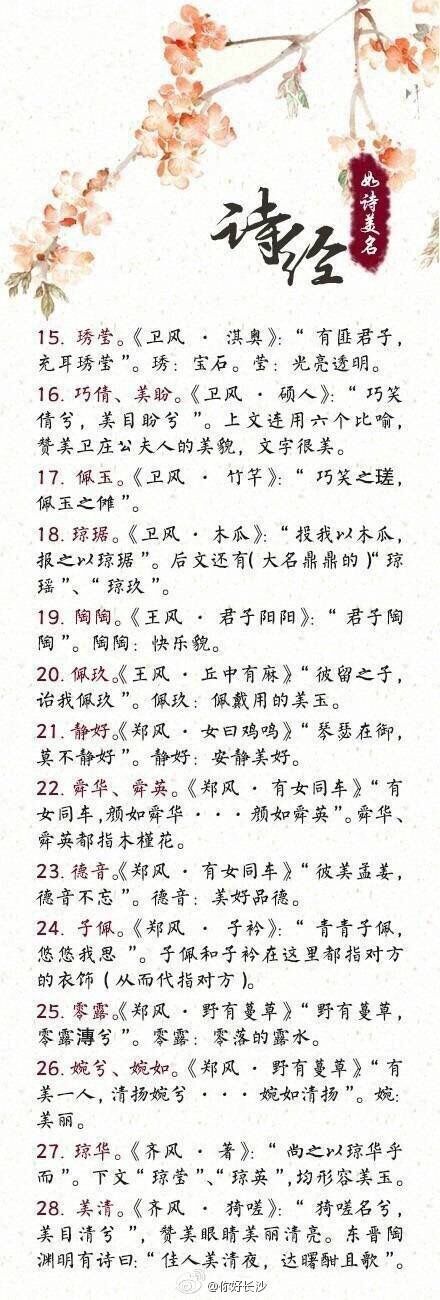 诗经
如诗美名
15. 琇莹。《卫风 · 淇奥》：“ 有匪君子，
充耳琇莹 ”。琇：宝石。莹：光亮透明。
16. 巧倩、美盼。《卫风 · 硕人》：“ 巧笑
倩兮，美目盼兮 ”。上文连用六个比喻，
赞美卫庄公夫人的美貌，文字很美。
17. 佩玉。《卫风 · 竹竿》：“ 巧笑之瑳，
佩玉之傩 ”。
18. 琼琚。《卫风 · 木瓜》：“ 投我以木瓜，
报之以琼琚 ”。后文还有( 大名鼎鼎的 )“ 琼
瑶 ”、“ 琼玖 ”。
19. 陶陶。《王风 · 君子阳阳》：“ 君子陶
陶 ”。陶陶：快乐貌。
20. 佩玖。《王风 · 丘中有麻》“ 彼留之子，
诒我佩玖 ”。佩玖：佩戴用的美玉。
21. 静好。《郑风 · 女曰鸡鸣》：“ 琴瑟在御，
莫不静好 ”。静好：安静美好。
22. 舜华、舜英。《郑风 · 有女同车》“ 有
女同车，颜如舜华 · · · 颜如舜英 ”。舜华、
舜英都指木槿花。
23. 德音。《郑风 · 有女同车》“ 彼美孟姜，
德音不忘 ”。德音：美好品德。
24. 子佩。《郑风 · 子衿》：“ 青青子佩，
悠悠我思 ”。子佩和子衿在这里都指对方
的衣饰（ 从而代指对方 ）。
25. 零露。《郑风 · 野有蔓草》“ 野有蔓草，
零露漙兮 ”。零露：零落的露水。
26. 婉兮、婉如。《郑风 · 野有蔓草》“ 有
美一人，清扬婉兮 · · · 婉如清扬 ”。婉：
美丽。
27. 琼华。《齐风 · 著》：“ 尚之以琼华乎
而 ”。下文“ 琼莹 ”、“ 琼英 ”，均形容美玉。
28. 美清。《齐风 · 猗嗟》：“ 猗嗟名兮，
美目清兮 ”，赞美眼睛美丽清亮。东晋陶
渊明有诗曰：“ 佳人美清夜，达曙酣且歌 ”。
@你好长沙